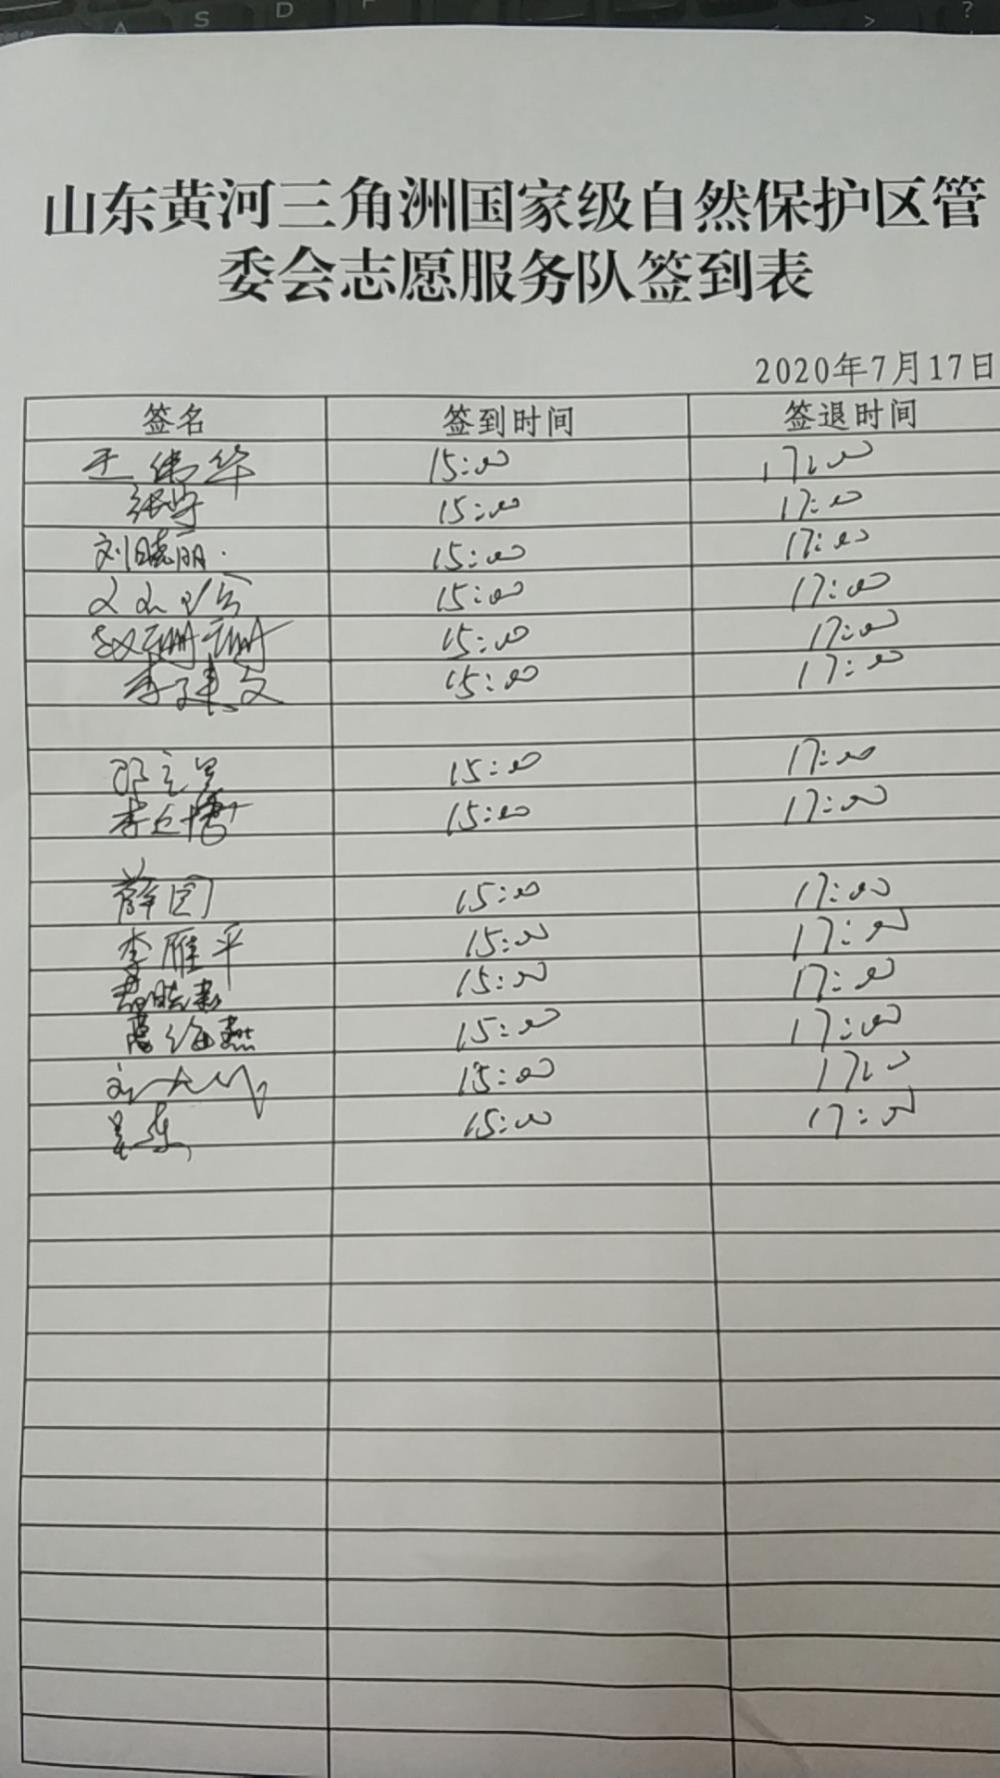 山东黄河三角洲国家级自然保护区管
委会志愿服务队签到表
2020年7月17日
签名 签到时间 签退时间
王伟华 15:00 17:00
15:00 17:00
刘晓丽 15:00 17:00
15:00 17:00
赵珊珊 15:00 17:00
李建文 15:00 17:00
15:00 17:00
李 15:00 17:00
薛园 15:00 17:00
李雁平 15:00 17:00
15:00 17:00
海燕 15:00 17:00
15:00 17:00
15:00 17:00